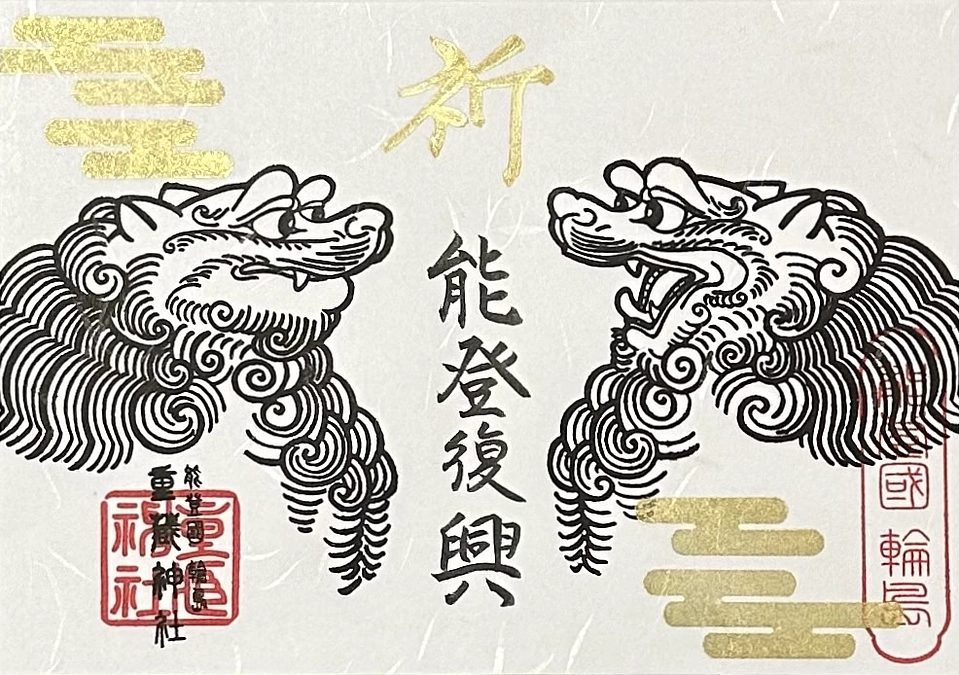 祈
能登復興
能登國 輪島
能登國 輪島
重蔵神社